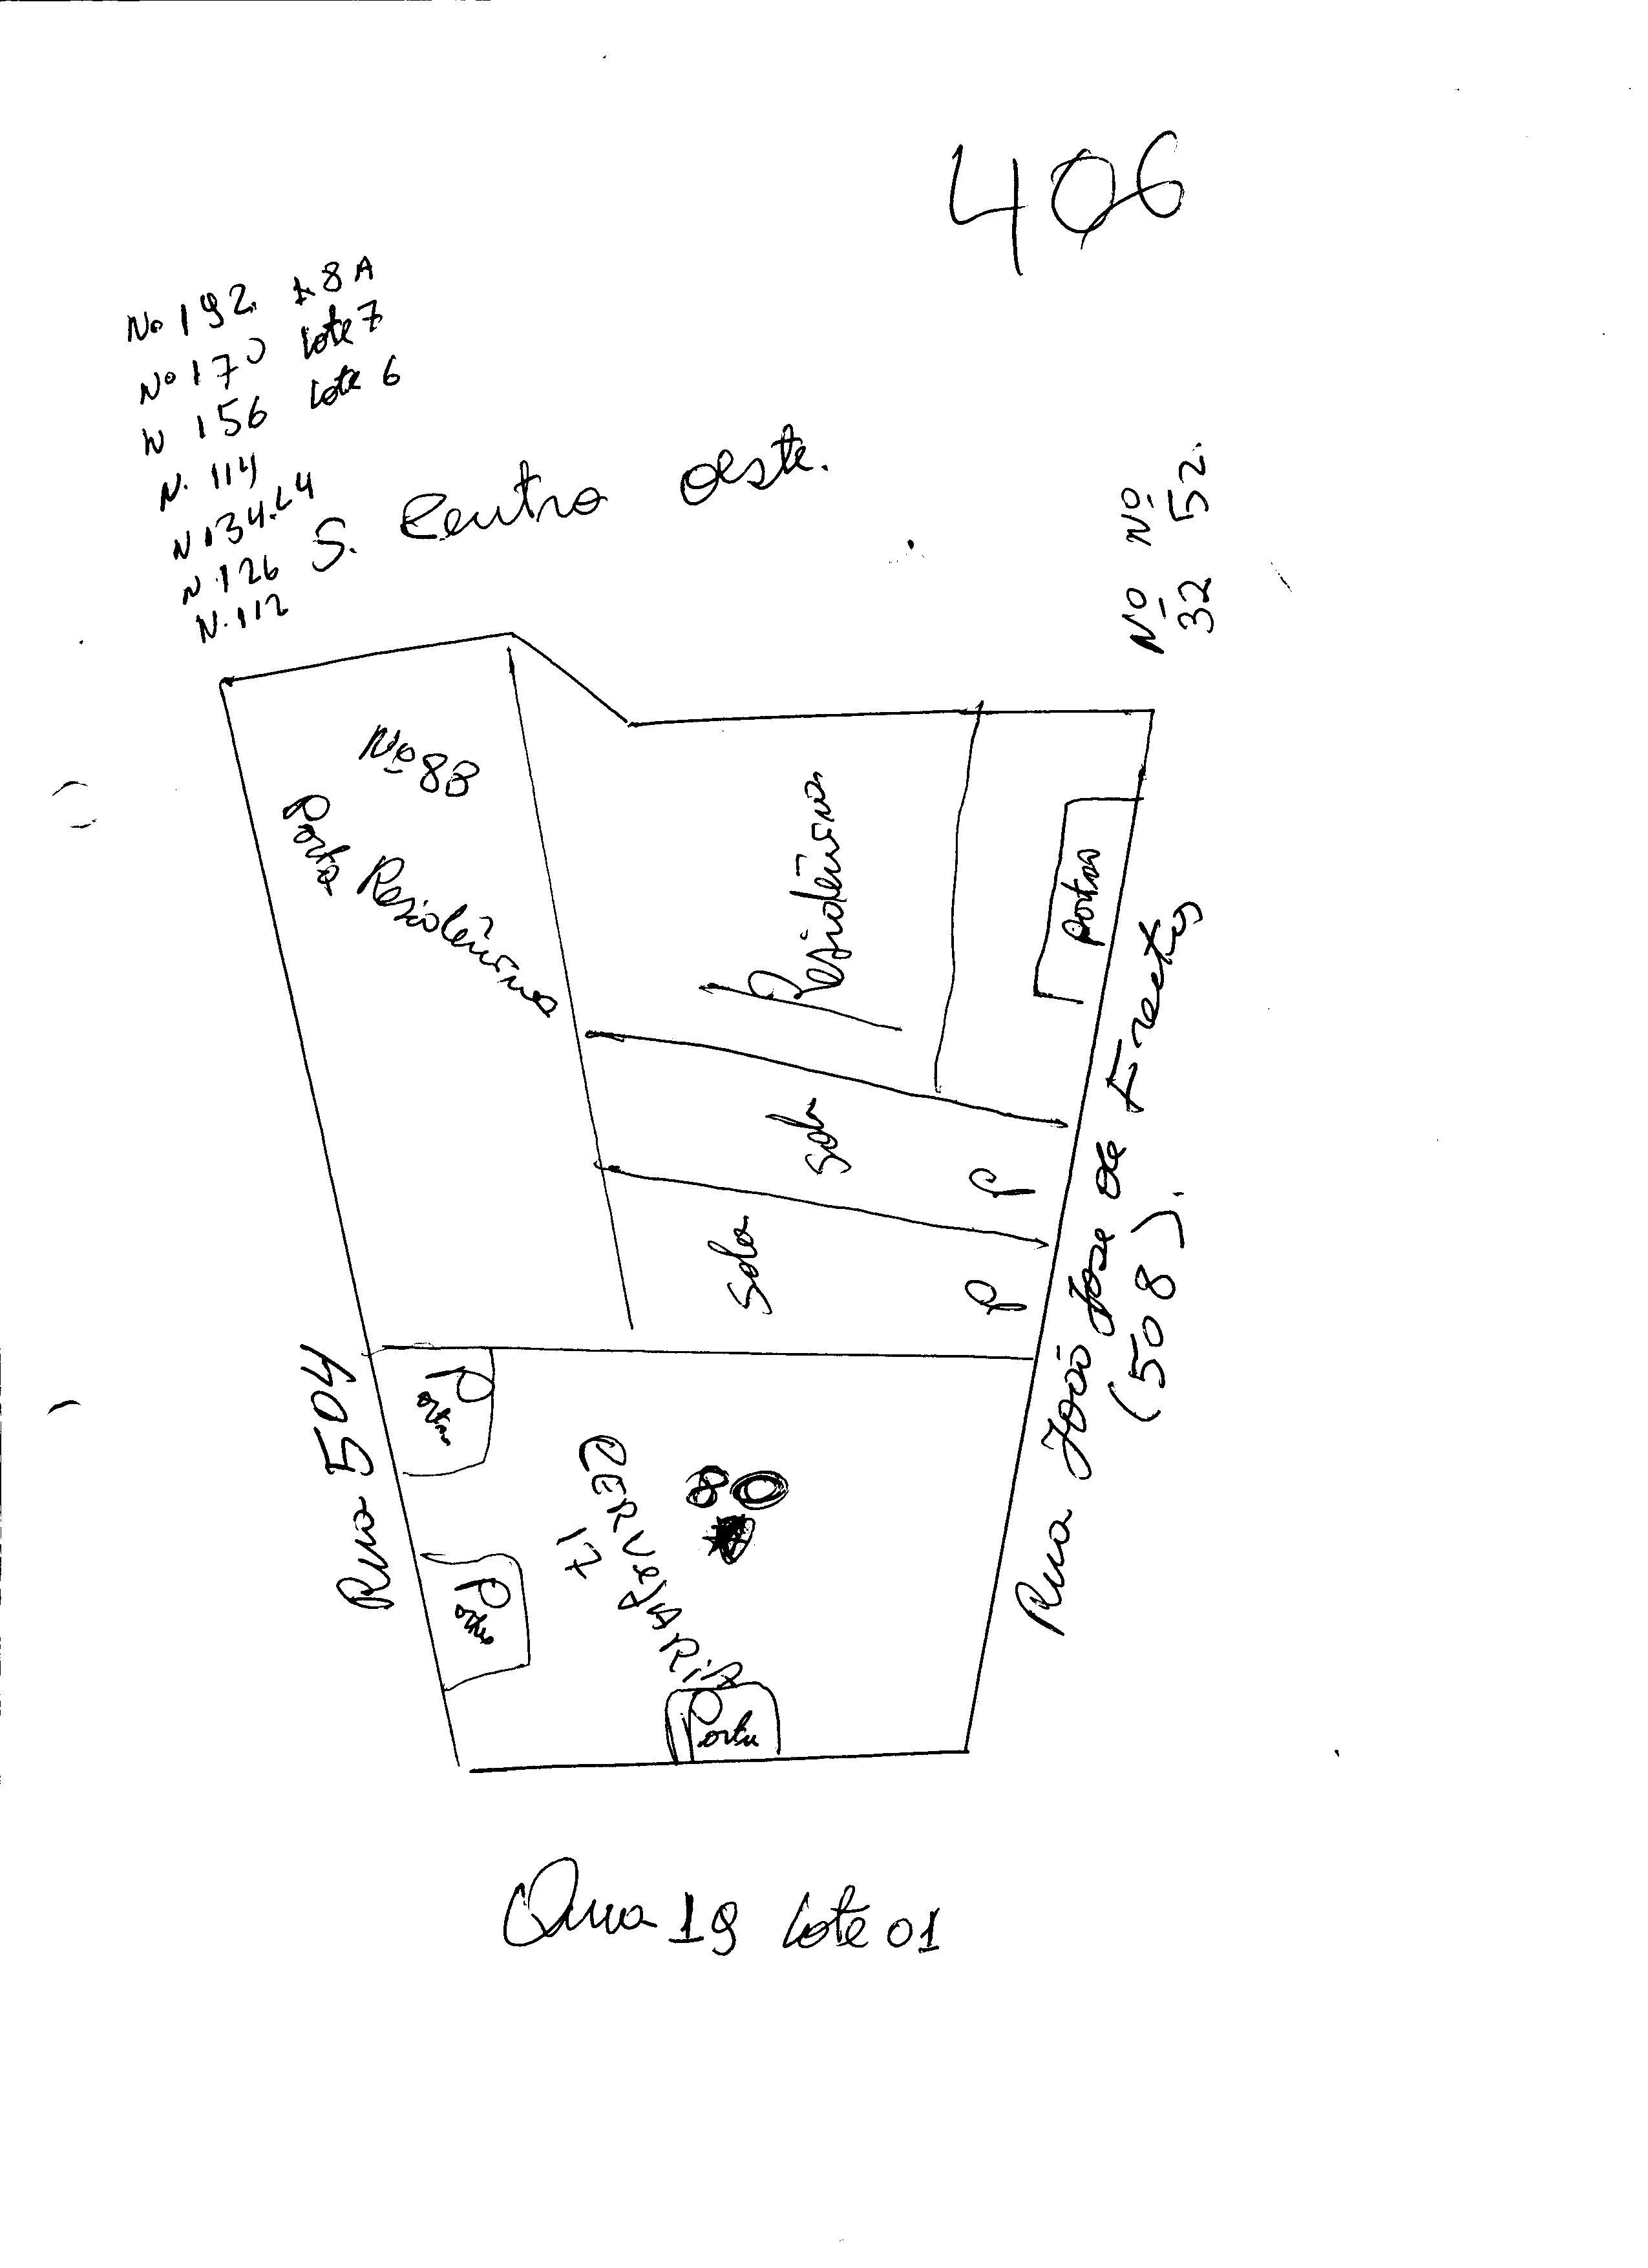 406
No 192. L 8A
No 170 Lote 7
N 156 Lote 6
N. 114
N 134. L4
N. 126
N. 112
S. Centro Oeste.
Nº Nº
32 52.
Nº 88
Porta
Residência
Residência
Portão
Sala
P
Sala
P
Rua 504
Rua João José de Freitas
(508).
Portão
Portão
CERVEJARIA
17
80
Porta
Qua 19 Lote 01